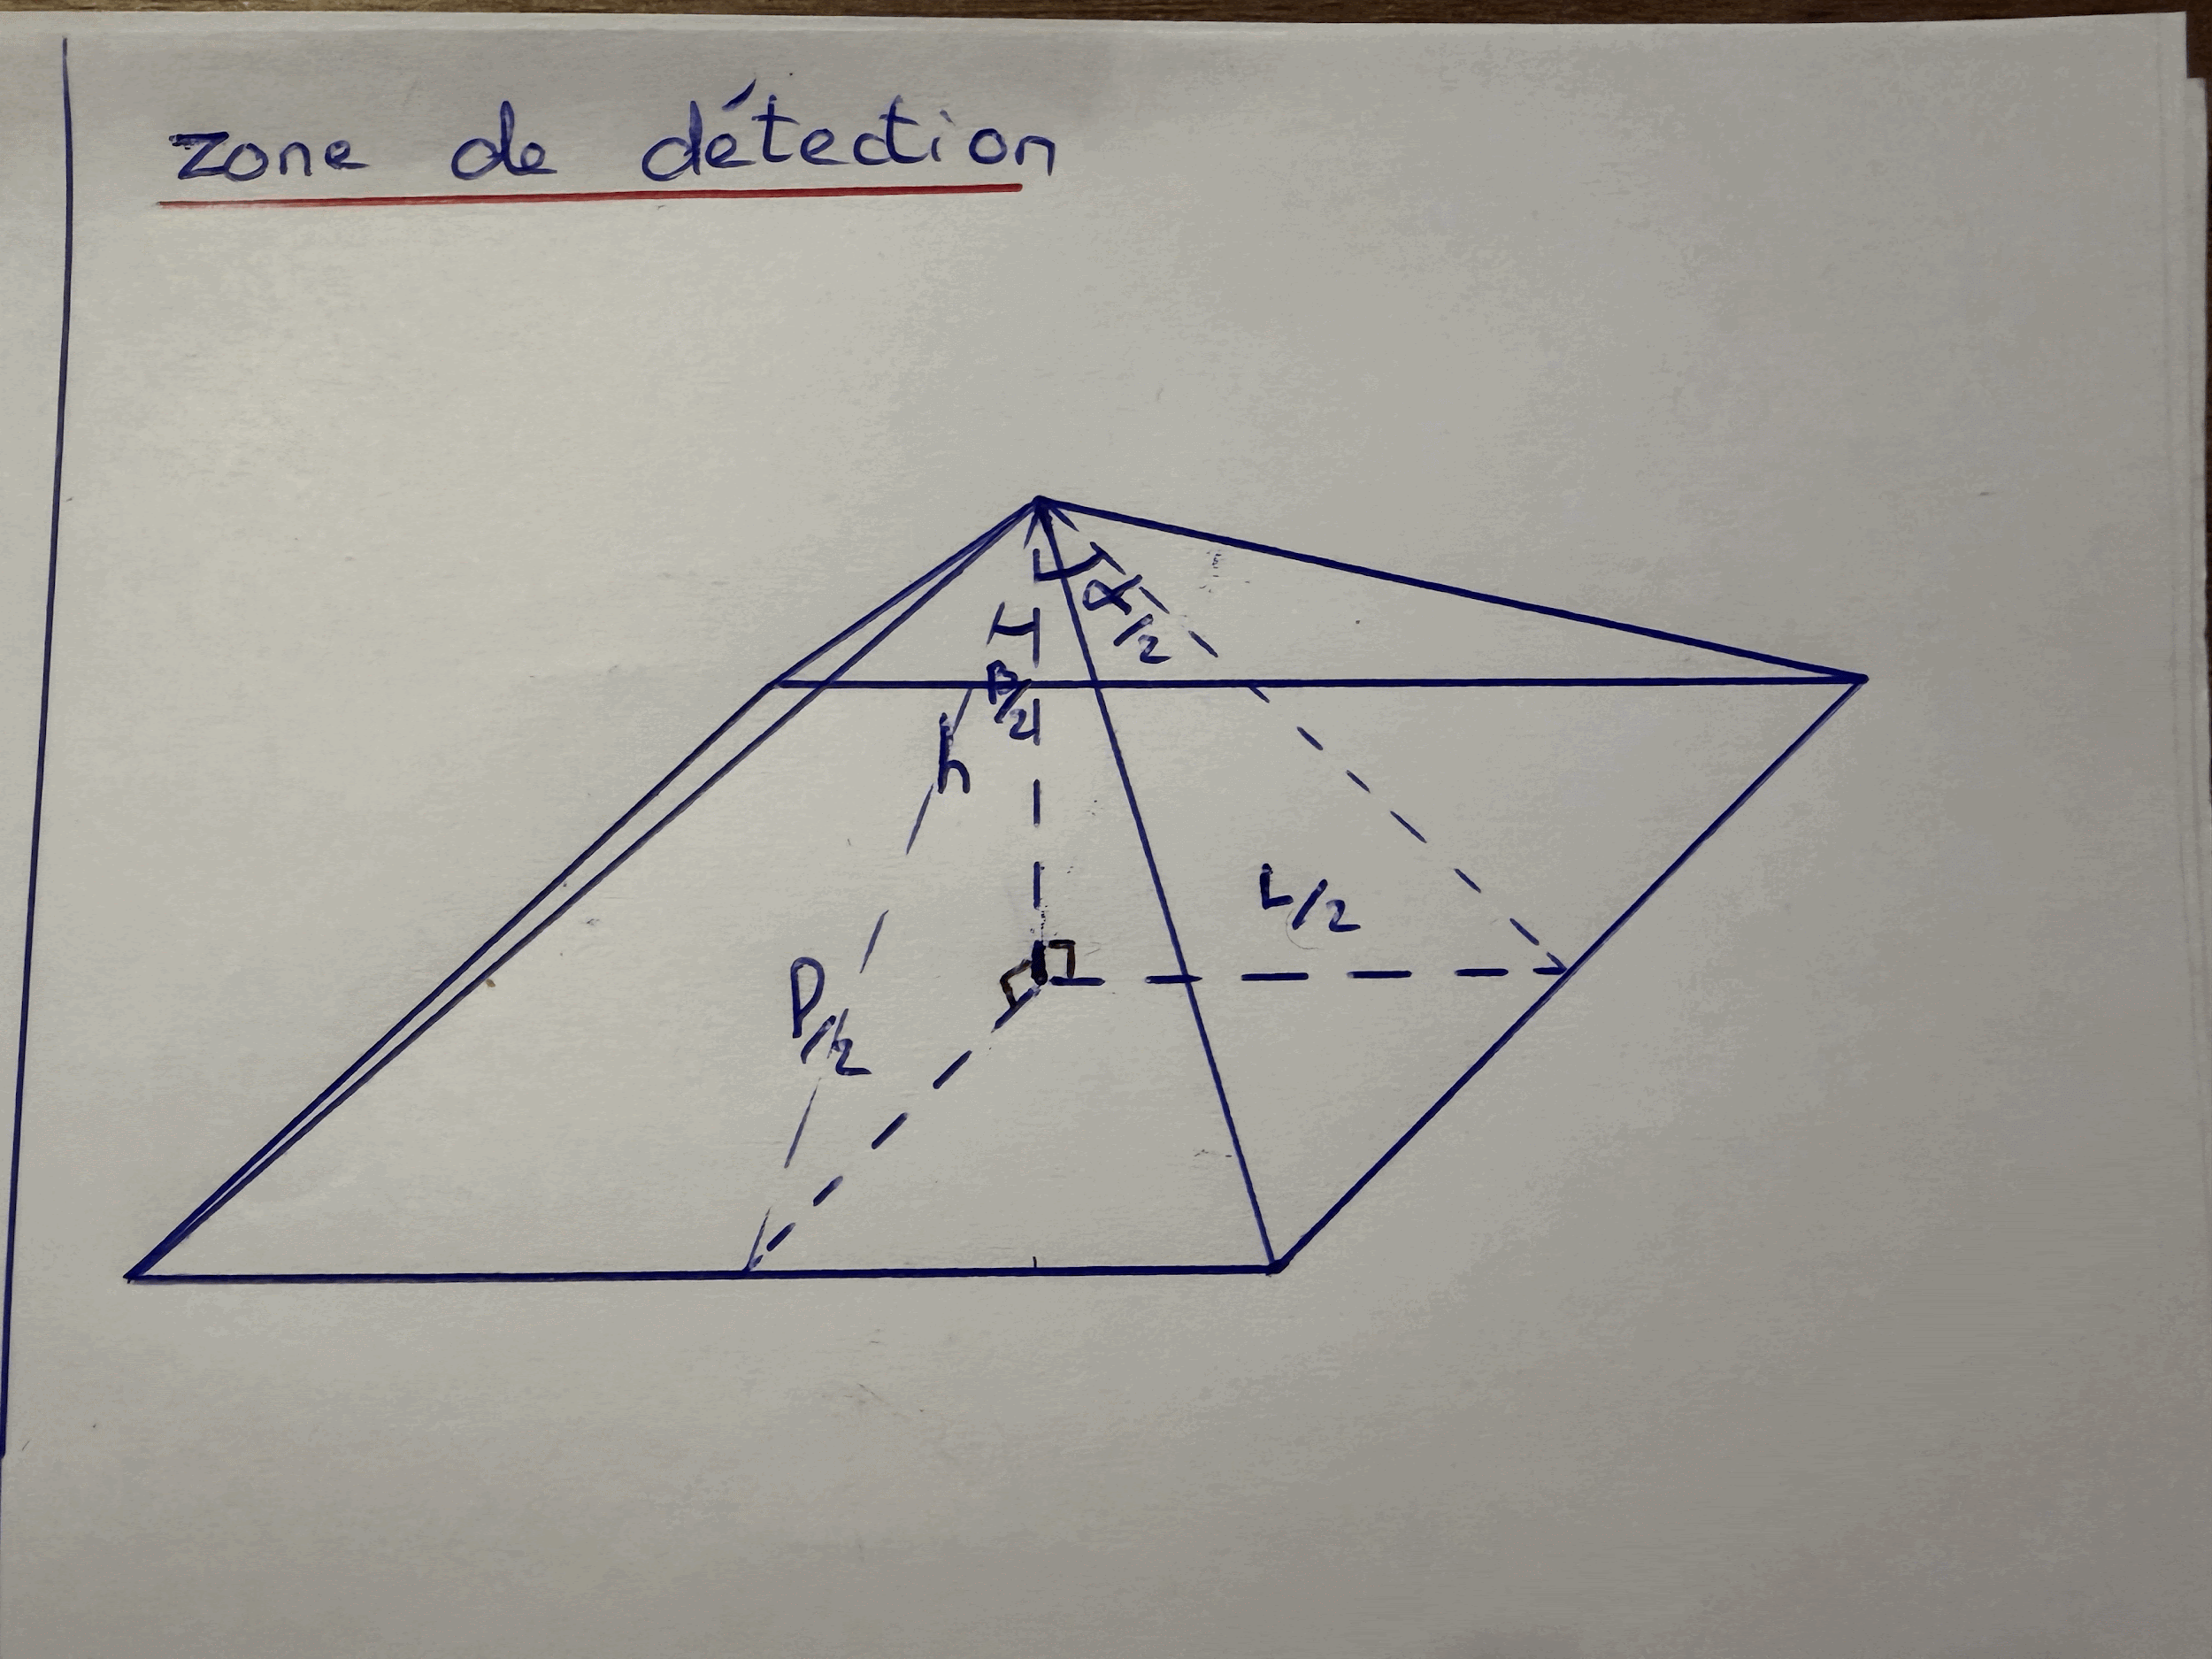 zone de détection
α/2
H
β/2
h
L/2
P/2